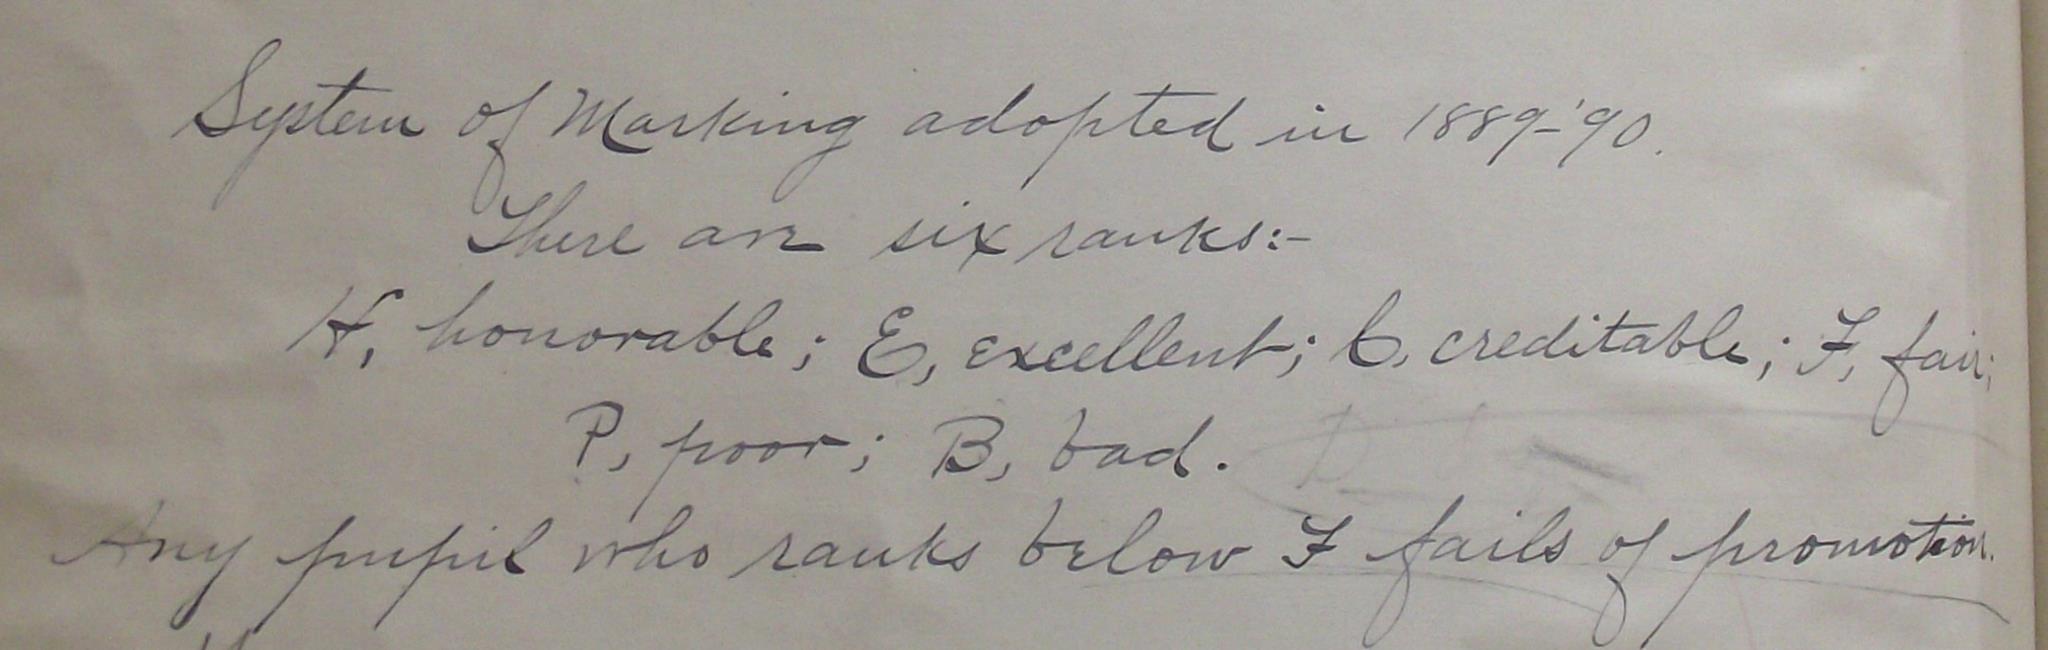 System of Marking adopted in 1889-'90.
There are six ranks:-
H, honorable; E, excellent; C, creditable; F, fair;
P, poor; B, bad.
Any pupil who ranks below F fails of promotion.